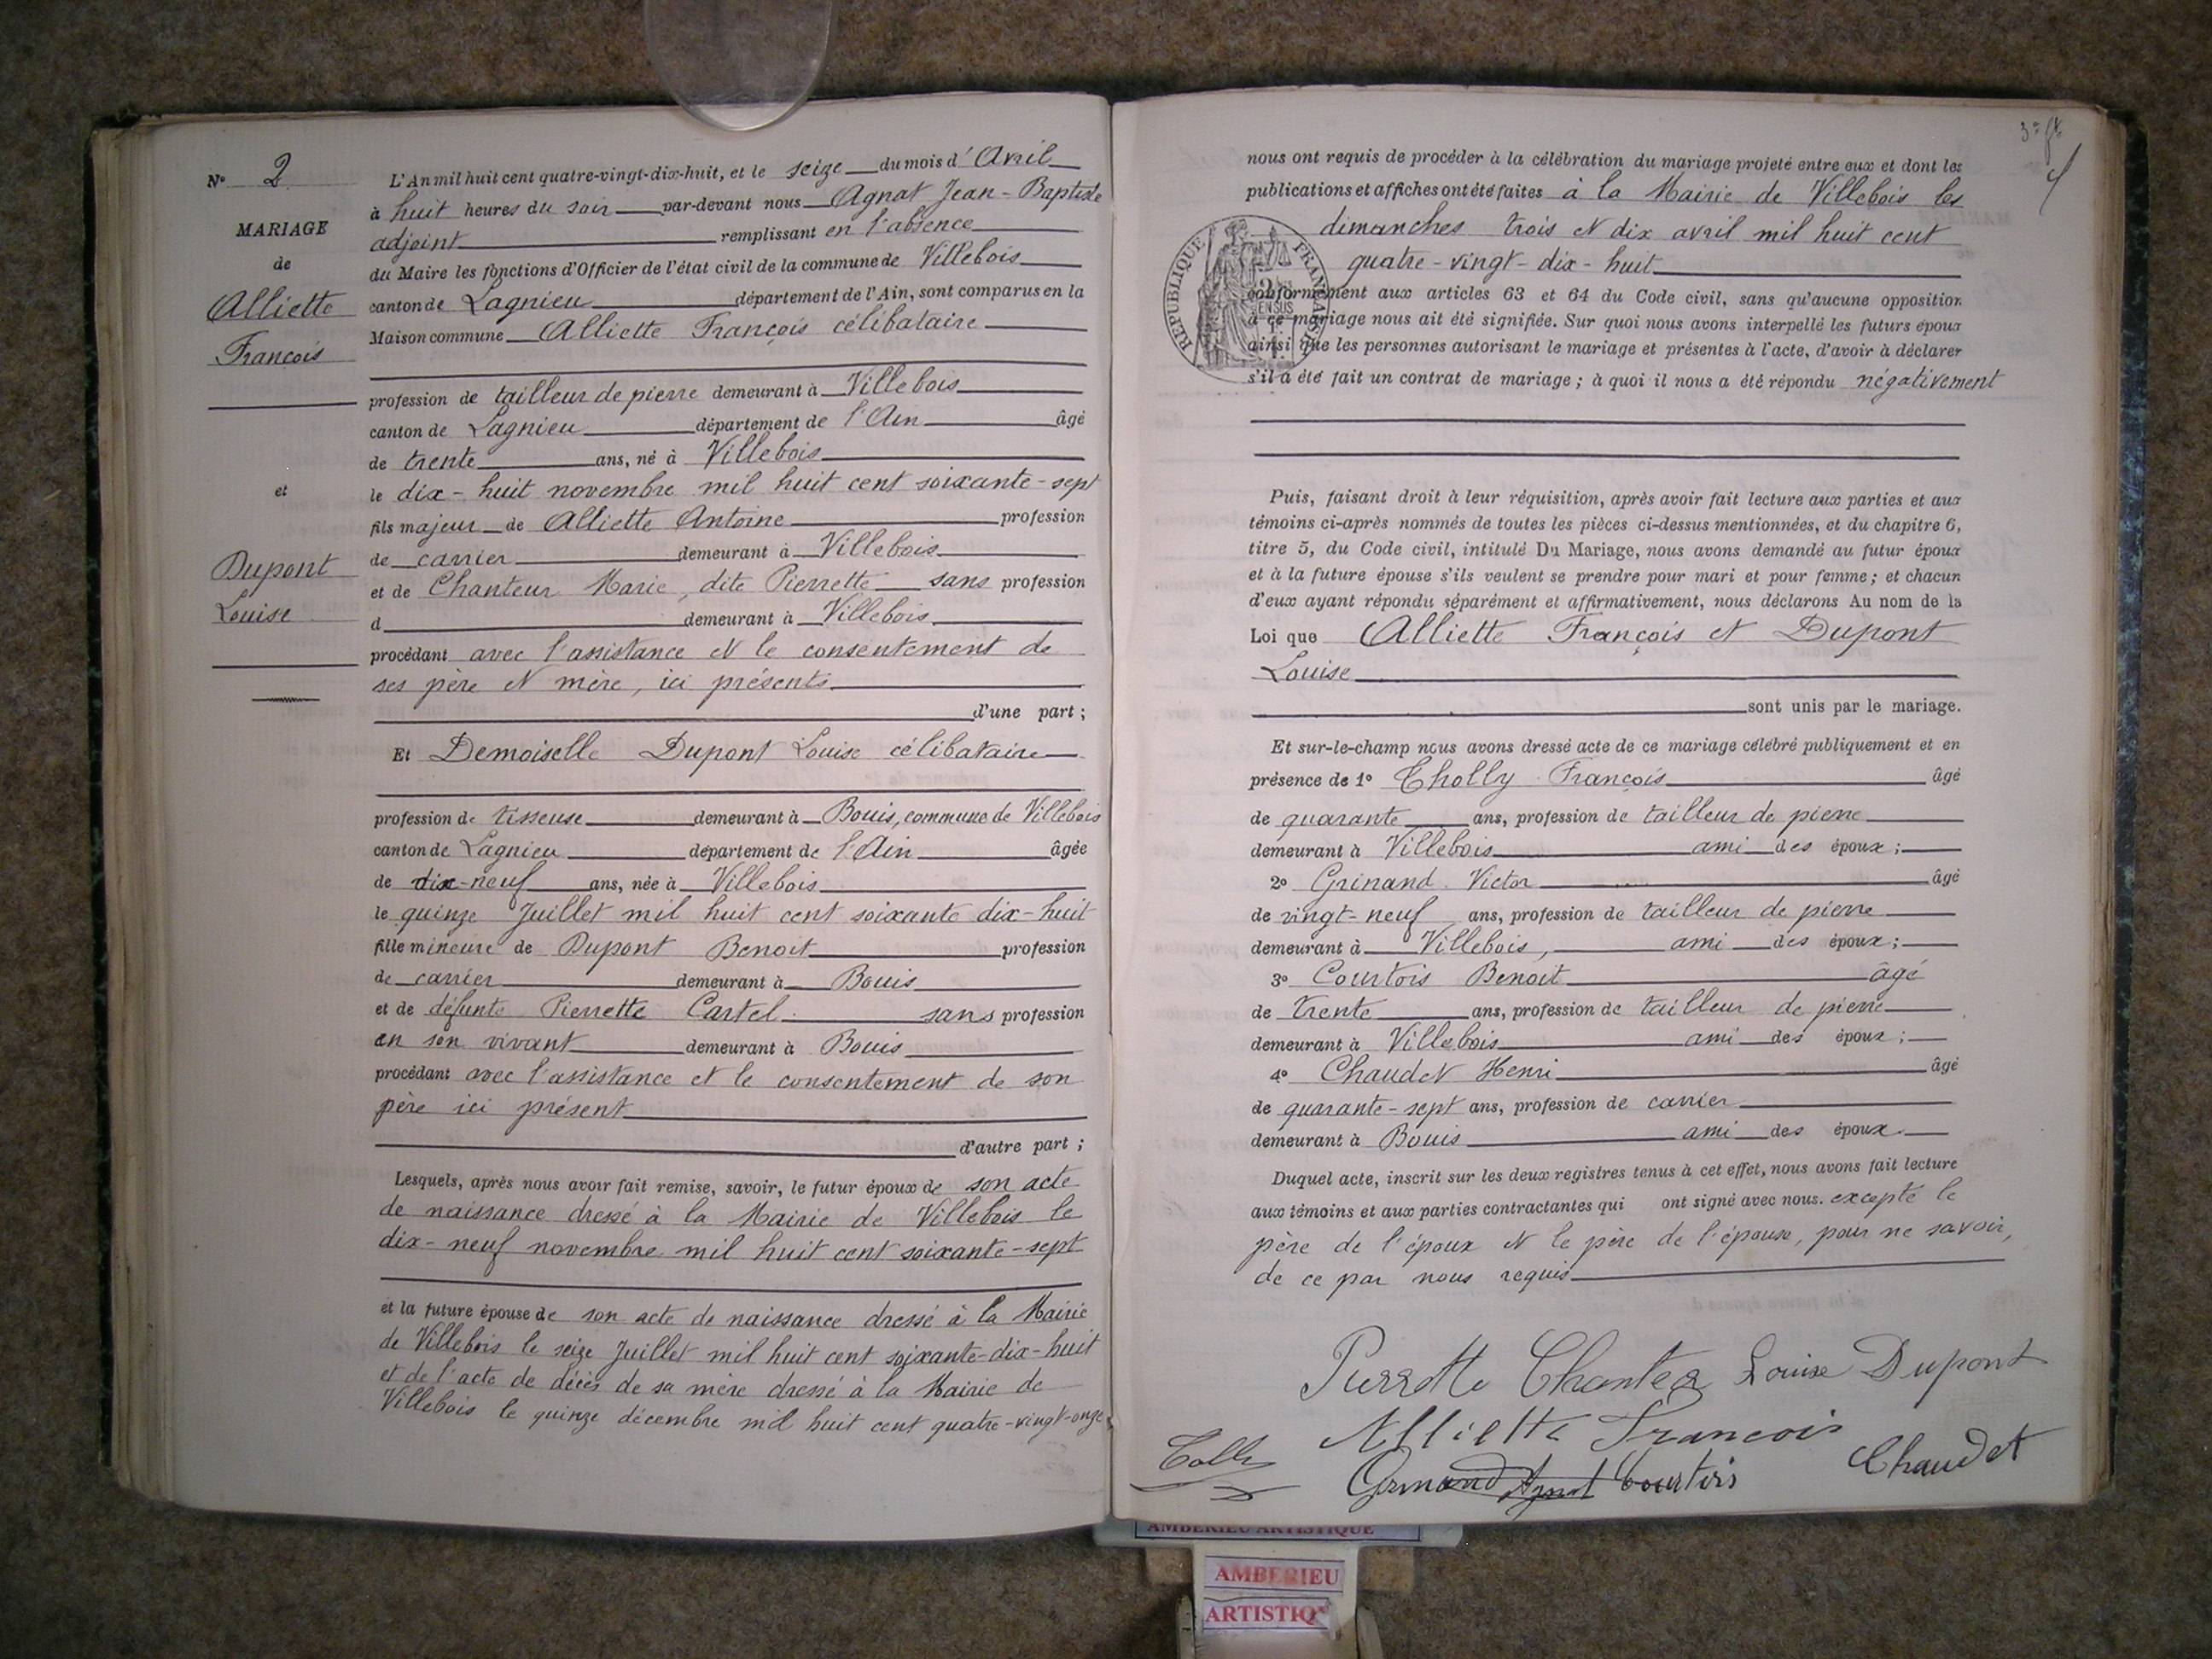 N° 2
MARIAGE
de
Alliette
François
et
Dupont
Louise
L'An mil huit cent quatre-vingt-dix-huit, et le seize du mois d'Avril
à huit heures du soir par-devant nous Agnat Jean-Baptiste
adjoint remplissant en l'absence
du Maire les fonctions d'Officier de l'état civil de la commune de Villebois
canton de Lagnieu département de l'Ain, sont comparus en la
Maison commune Alliette François célibataire
profession de tailleur de pierre demeurant à Villebois
canton de Lagnieu département de l'Ain âgé
de trente ans, né à Villebois
le dix-huit novembre mil huit cent soixante-sept
fils majeur de Alliette Antoine profession
de carrier demeurant à Villebois
et de Chanteur Marie, dite Pierrette sans profession
d demeurant à Villebois
procédant avec l'assistance et le consentement de
ses père et mère, ici présents
d'une part ;
Et Demoiselle Dupont Louise célibataire
profession de tisseuse demeurant à Bouis, commune de Villebois
canton de Lagnieu département de l'Ain âgée
de dix-neuf ans, née à Villebois
le quinze Juillet mil huit cent soixante dix-huit
fille mineure de Dupont Benoit profession
de carrier demeurant à Bouis
et de défunte Pierrette Cartel sans profession
en son vivant demeurant à Bouis
procédant avec l'assistance et le consentement de son
père ici présent
d'autre part ;
Lesquels, après nous avoir fait remise, savoir, le futur époux de son acte
de naissance dressé à la Mairie de Villebois le
dix-neuf novembre mil huit cent soixante-sept
et la future épouse de son acte de naissance dressé à la Mairie
de Villebois le seize Juillet mil huit cent soixante-dix-huit
et de l'acte de décès de sa mère dressé à la Mairie de
Villebois le quinze décembre mil huit cent quatre-vingt-onze
nous ont requis de procéder à la célébration du mariage projeté entre eux et dont les
publications et affiches ont été faites à la Mairie de Villebois les
dimanches trois et dix avril mil huit cent
quatre-vingt-dix-huit
RÉPUBLIQUE FRANÇAISE
conformément aux articles 63 et 64 du Code civil, sans qu'aucune opposition
à ce mariage nous ait été signifiée. Sur quoi nous avons interpellé les futurs époux
ainsi que les personnes autorisant le mariage et présentes à l'acte, d'avoir à déclarer
s'il a été fait un contrat de mariage ; à quoi il nous a été répondu négativement
Puis, faisant droit à leur réquisition, après avoir fait lecture aux parties et aux
témoins ci-après nommés de toutes les pièces ci-dessus mentionnées, et du chapitre 6,
titre 5, du Code civil, intitulé Du Mariage, nous avons demandé au futur époux
et à la future épouse s'ils veulent se prendre pour mari et pour femme ; et chacun
d'eux ayant répondu séparément et affirmativement, nous déclarons Au nom de la
Loi que Alliette François et Dupont
Louise
sont unis par le mariage.
Et sur-le-champ nous avons dressé acte de ce mariage célébré publiquement et en
présence de 1° Tholly François âgé
de quarante ans, profession de tailleur de pierre
demeurant à Villebois ami des époux ;
2° Grinand Victor âgé
de vingt-neuf ans, profession de tailleur de pierre
demeurant à Villebois, ami des époux ;
3° Courtois Benoit âgé
de trente ans, profession de tailleur de pierre
demeurant à Villebois ami des époux ;
4° Chaudet Henri âgé
de quarante-sept ans, profession de carrier
demeurant à Bouis ami des époux
Duquel acte, inscrit sur les deux registres tenus à cet effet, nous avons fait lecture
aux témoins et aux parties contractantes qui ont signé avec nous. excepté le
père de l'époux et le père de l'épouse, pour ne savoir,
de ce par nous requis
Pierrette Louise Dupont
Alliette Francois
Agnat Courtois Chaudet
AMBERIEU ARTISTIQUE
AMBERIEU
ARTISTIQ